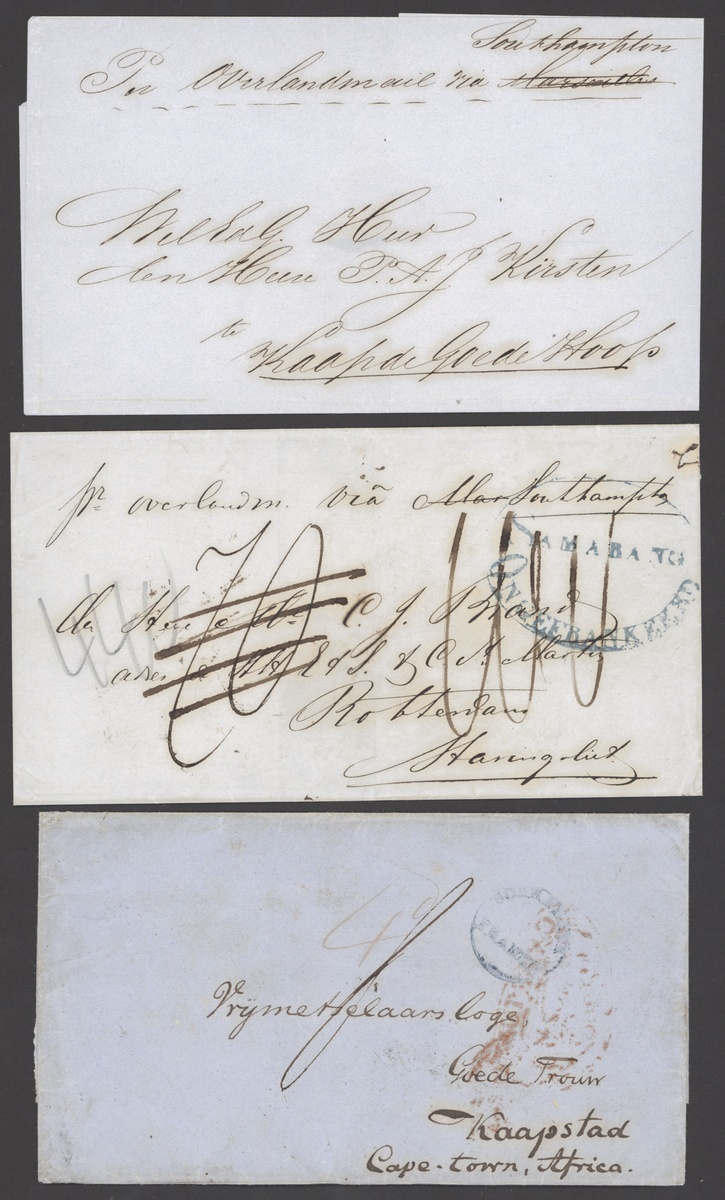 Southampton
Per Overlandmail via Marseille
WelEdG. Heer
den Heere P. A. J. Kirsten
te
Kaap de Goede Hoop
pr overlandm. via Mar Southampton
70
AMABANG
ONGEFRANKEERD
den Heer C. J. Brand
adres C. A.
Rotterdam
Haringvliet
4d
Vrymetselaars loge
Goede Trouw
Kaapstad
Cape-town, Africa.